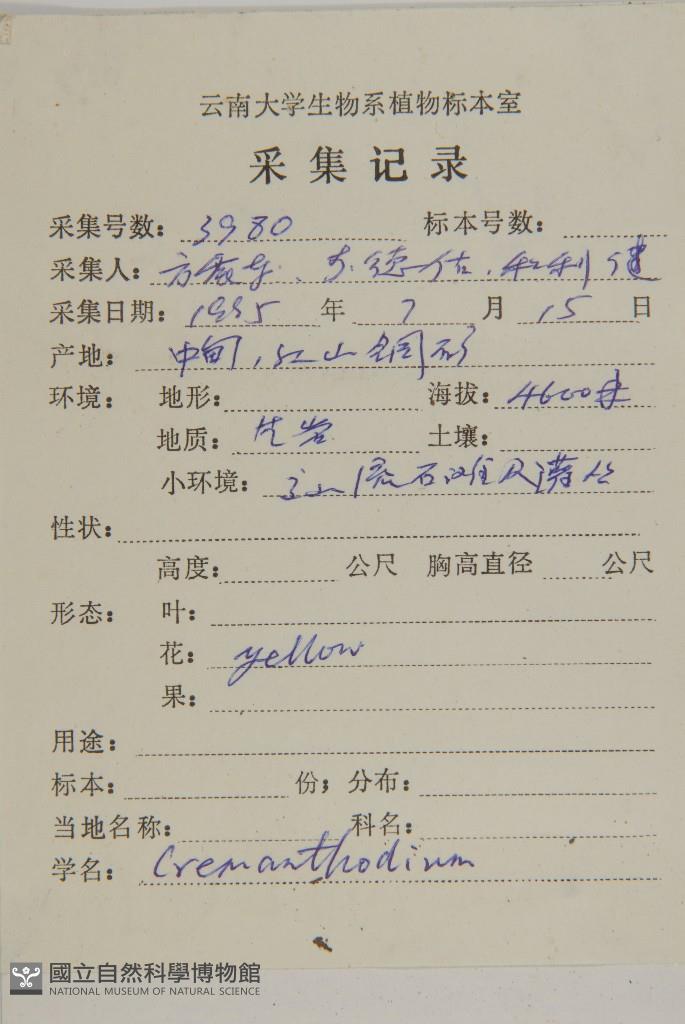 云南大学生物系植物标本室
采集记录
采集号数: 3980 标本号数:
采集人: 方震东、李德铢、和利健
采集日期: 1995 年 7 月 15 日
产地: 中甸,红山铜矿
环境: 地形: 海拔: 4600米
地质: 岩 土壤:
小环境: 流石滩及灌丛
性状:
高度: 公尺 胸高直径 公尺
形态: 叶:
花: yellow
果:
用途:
标本: 份; 分布:
当地名称: 科名:
学名: Cremanthodium
國立自然科學博物館
NATIONAL MUSEUM OF NATURAL SCIENCE